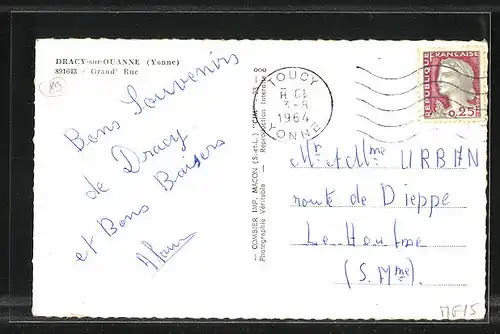 DRACY-sur-OUANNE (Yonne)
891613 - Grand' Rue
89
Bons Souvenirs
de Dracy
et Bons Baisers
TOUCY
YONNE
3-8
1964
REPUBLIQUE FRANÇAISE
0,25
COMBIER IMP. MACON (S.-et-L.)
Photographie Véritable - Reproduction Interdite
Mr et Mme URBAN
route de Dieppe
Le Houlme
(S. Mme)